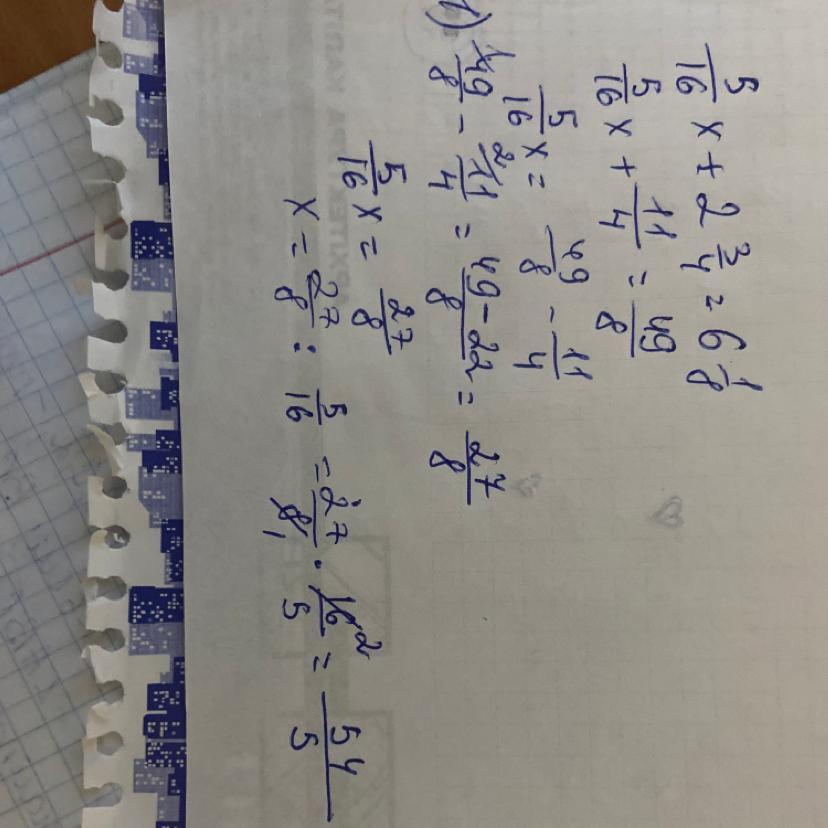 5/16 x + 2 3/4 = 6 1/8
5/16 x + 11/4 = 49/8
5/16 x = 49/8 - 11/4
1) 49/8 - 11/4 = 49-22/8 = 27/8
5/16 x = 27/8
x = 27/8 : 5/16 = 27/8 · 16/5 = 54/5